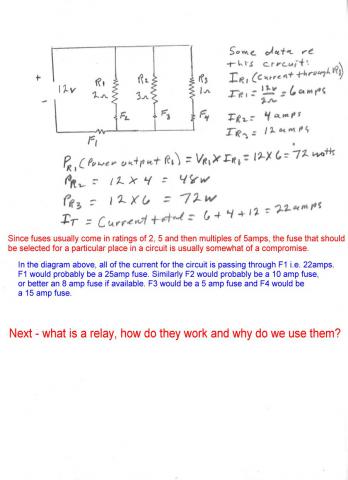 Some data re
this circuit:
+
R1
R2
R3
IR1 (current through R1)
12v
2Ω
3Ω
1Ω
IR1 = 12v/2Ω = 6 amps
-
F2
F3
F4
IR2 = 4 amps
F1
IR3 = 12 amps
PR1 (Power output R1) = VR1 X IR1 = 12 X 6 = 72 watts
PR2 = 12 X 4 = 48w
PR3 = 12 X 6 = 72w
IT = Current total = 6 + 4 + 12 = 22 amps
Since fuses usually come in ratings of 2, 5 and then multiples of 5amps, the fuse that should
be selected for a particular place in a circuit is usually somewhat of a compromise.
In the diagram above, all of the current for the circuit is passing through F1 i.e. 22amps.
F1 would probably be a 25amp fuse. Similarly F2 would probably be a 10 amp fuse,
or better an 8 amp fuse if available. F3 would be a 5 amp fuse and F4 would be
a 15 amp fuse.
Next - what is a relay, how do they work and why do we use them?